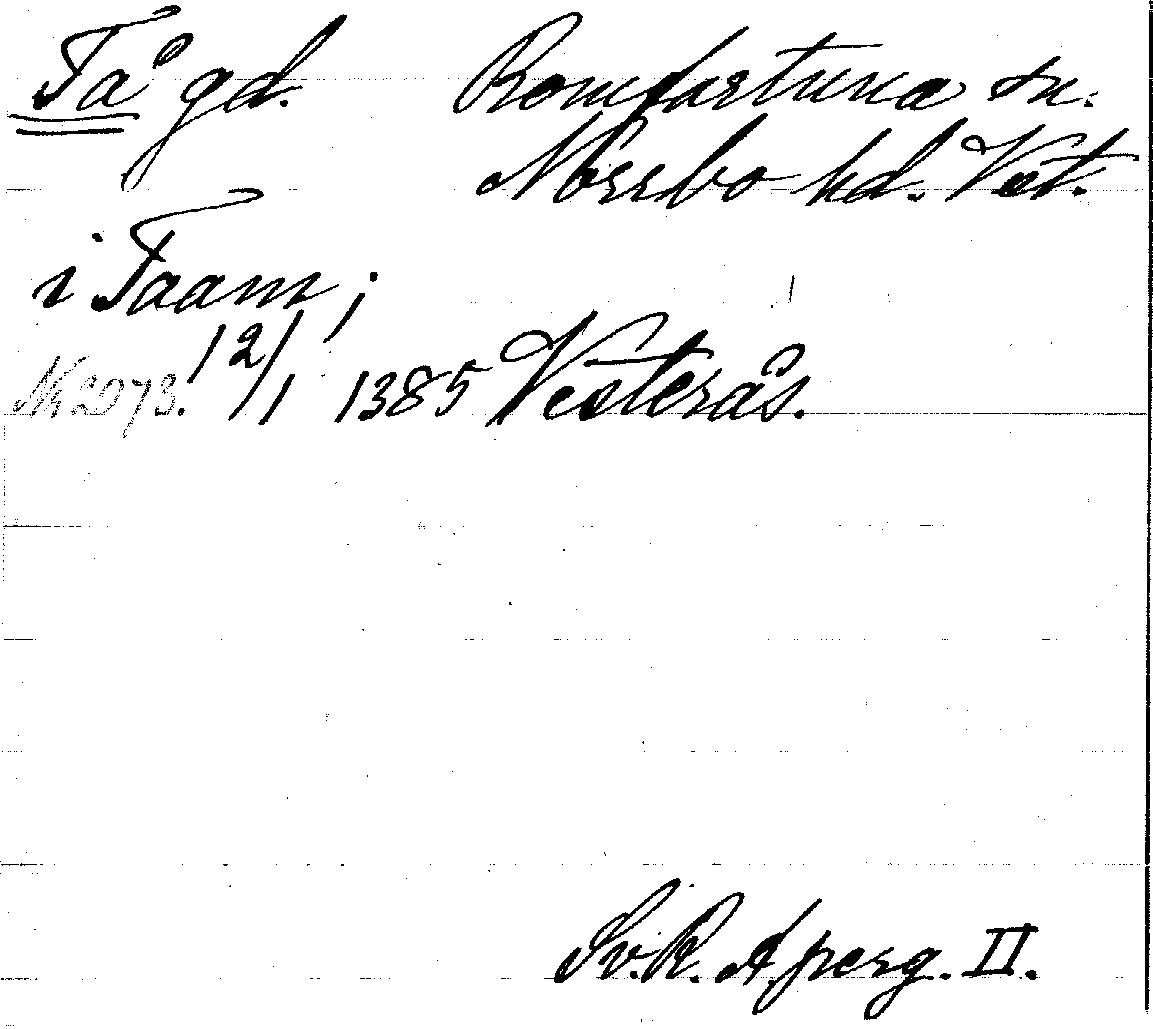 Tå gd. Romfartuna sn.
Norrbo hd. Vst.
i Taam;
Nr 2073. 12/1 1385 Vesterås.
Sv. R. A perg. II.